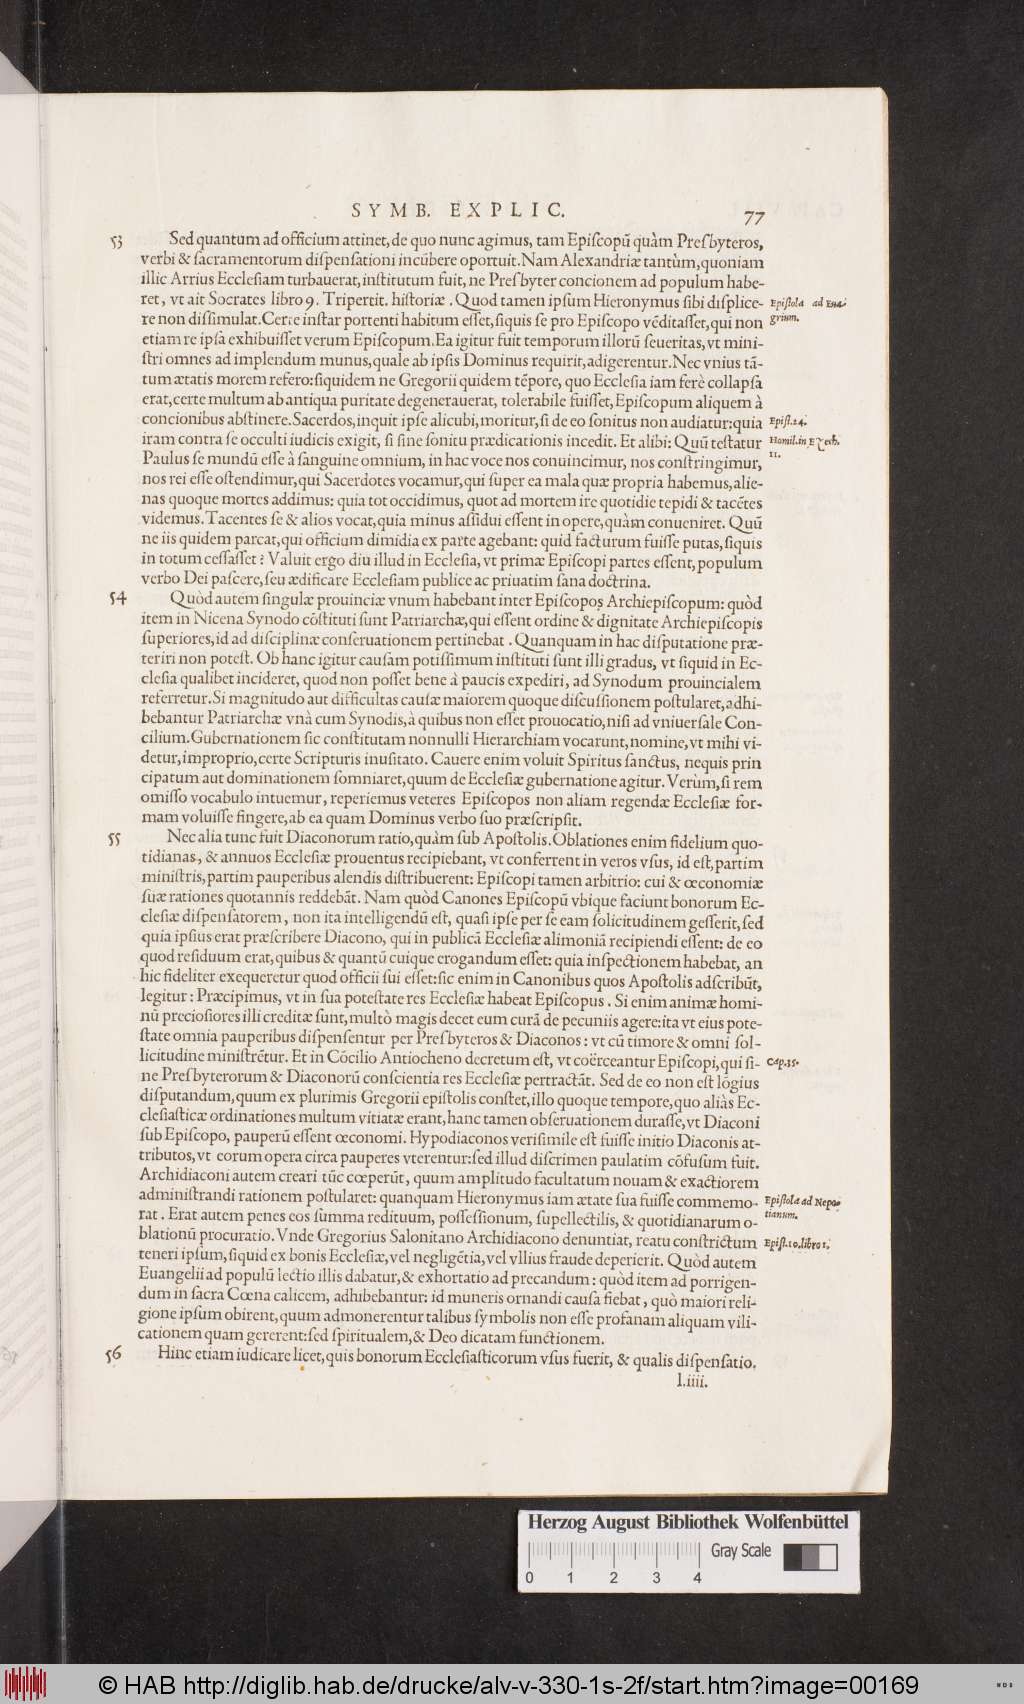 SYMB. EXPLIC.
77
53 Sed quantum ad officium attinet, de quo nunc agimus, tam Episcopū quàm Presbyteros,
verbi & sacramentorum dispensationi incūbere oportuit. Nam Alexandriæ tantùm, quoniam
illic Arrius Ecclesiam turbauerat, institutum fuit, ne Presbyter concionem ad populum habe-
ret, vt ait Socrates libro 9. Tripertit. historiæ. Quod tamen ipsum Hieronymus sibi displice-
Epistola ad Eua-
grium.
re non dissimulat. Certe instar portenti habitum esset, siquis se pro Episcopo vēditasset, qui non
etiam re ipsa exhibuisset verum Episcopum. Ea igitur fuit temporum illorū seueritas, vt mini-
stri omnes ad implendum munus, quale ab ipsis Dominus requirit, adigerentur. Nec vnius tā-
tum ætatis morem refero: siquidem ne Gregorii quidem tēpore, quo Ecclesia iam ferè collapsa
erat, certe multum ab antiqua puritate degenerauerat, tolerabile fuisset, Episcopum aliquem à
concionibus abstinere. Sacerdos, inquit ipse alicubi, moritur, si de eo sonitus non audiatur: quia
Epist. 24.
iram contra se occulti iudicis exigit, si sine sonitu prædicationis incedit. Et alibi: Quū testatur
Homil. in Ezech.
11.
Paulus se mundū esse à sanguine omnium, in hac voce nos conuincimur, nos constringimur,
nos rei esse ostendimur, qui Sacerdotes vocamur, qui super ea mala quæ propria habemus, alie-
nas quoque mortes addimus: quia tot occidimus, quot ad mortem ire quotidie tepidi & tacētes
videmus. Tacentes se & alios vocat, quia minus assidui essent in opere, quàm conueniret. Quū
ne iis quidem parcat, qui officium dimidia ex parte agebant: quid facturum fuisse putas, siquis
in totum cessasset? Valuit ergo diu illud in Ecclesia, vt primæ Episcopi partes essent, populum
verbo Dei pascere, seu ædificare Ecclesiam publice ac priuatim sana doctrina.
54 Quòd autem singulæ prouinciæ vnum habebant inter Episcopos Archiepiscopum: quòd
item in Nicena Synodo cōstituti sunt Patriarchæ, qui essent ordine & dignitate Archiepiscopis
superiores, id ad disciplinæ conseruationem pertinebat. Quanquam in hac disputatione præ-
teriri non potest. Ob hanc igitur causam potissimum instituti sunt illi gradus, vt siquid in Ec-
clesia qualibet incideret, quod non posset bene à paucis expediri, ad Synodum prouincialem
referretur. Si magnitudo aut difficultas causæ maiorem quoque discussionem postularet, adhi-
bebantur Patriarchæ vnà cum Synodis, à quibus non esset prouocatio, nisi ad vniuersale Con-
cilium. Gubernationem sic constitutam nonnulli Hierarchiam vocarunt, nomine, vt mihi vi-
detur, improprio, certe Scripturis inusitato. Cauere enim voluit Spiritus sanctus, nequis prin
cipatum aut dominationem somniaret, quum de Ecclesiæ gubernatione agitur. Verùm, si rem
omisso vocabulo intuemur, reperiemus veteres Episcopos non aliam regendæ Ecclesiæ for-
mam voluisse fingere, ab ea quam Dominus verbo suo præscripsit.
55 Nec alia tunc fuit Diaconorum ratio, quàm sub Apostolis. Oblationes enim fidelium quo-
tidianas, & annuos Ecclesiæ prouentus recipiebant, vt conferrent in veros vsus, id est, partim
ministris, partim pauperibus alendis distribuerent: Episcopi tamen arbitrio: cui & œconomiæ
suæ rationes quotannis reddebāt. Nam quòd Canones Episcopū vbique faciunt bonorum Ec-
clesiæ dispensatorem, non ita intelligendū est, quasi ipse per se eam solicitudinem gesserit, sed
quia ipsius erat præscribere Diacono, qui in publicā Ecclesiæ alimoniā recipiendi essent: de eo
quod residuum erat, quibus & quantū cuique erogandum esset: quia inspectionem habebat, an
hic fideliter exequeretur quod officii sui esset: sic enim in Canonibus quos Apostolis adscribūt,
legitur: Præcipimus, vt in sua potestate res Ecclesiæ habeat Episcopus. Si enim animæ homi-
nū preciosiores illi creditæ sunt, multò magis decet eum curā de pecuniis agere: ita vt eius pote-
state omnia pauperibus dispensentur per Presbyteros & Diaconos: vt cū timore & omni sol-
licitudine ministrētur. Et in Cōcilio Antiocheno decretum est, vt coërceantur Episcopi, qui si-
Cap. 35.
ne Presbyterorum & Diaconorū conscientia res Ecclesiæ pertractāt. Sed de eo non est lōgius
disputandum, quum ex plurimis Gregorii epistolis constet, illo quoque tempore, quo aliàs Ec-
clesiasticæ ordinationes multum vitiatæ erant, hanc tamen obseruationem durasse, vt Diaconi
sub Episcopo, pauperū essent œconomi. Hypodiaconos verisimile est fuisse initio Diaconis at-
tributos, vt eorum opera circa pauperes vterentur: sed illud discrimen paulatim cōfusum fuit.
Archidiaconi autem creari tūc cœperūt, quum amplitudo facultatum nouam & exactiorem
administrandi rationem postularet: quanquam Hieronymus iam ætate sua fuisse commemo-
Epistola ad Nepo-
tianum.
rat. Erat autem penes eos summa redituum, possessionum, supellectilis, & quotidianarum o-
blationū procuratio. Vnde Gregorius Salonitano Archidiacono denuntiat, reatu constrictum
Epist. 10. libro 1.
teneri ipsum, siquid ex bonis Ecclesiæ, vel negligētia, vel vllius fraude deperierit. Quòd autem
Euangelii ad populū lectio illis dabatur, & exhortatio ad precandum: quòd item ad porrigen-
dum in sacra Cœna calicem, adhibebantur: id muneris ornandi causa fiebat, quò maiori reli-
gione ipsum obirent, quum admonerentur talibus symbolis non esse profanam aliquam vili-
cationem quam gererent: sed spiritualem, & Deo dicatam functionem.
56 Hinc etiam iudicare licet, quis bonorum Ecclesiasticorum vsus fuerit, & qualis dispensatio.
I.iiii.
Herzog August Bibliothek Wolfenbüttel
Gray Scale
0 1 2 3 4
© HAB http://diglib.hab.de/drucke/alv-v-330-1s-2f/start.htm?image=00169